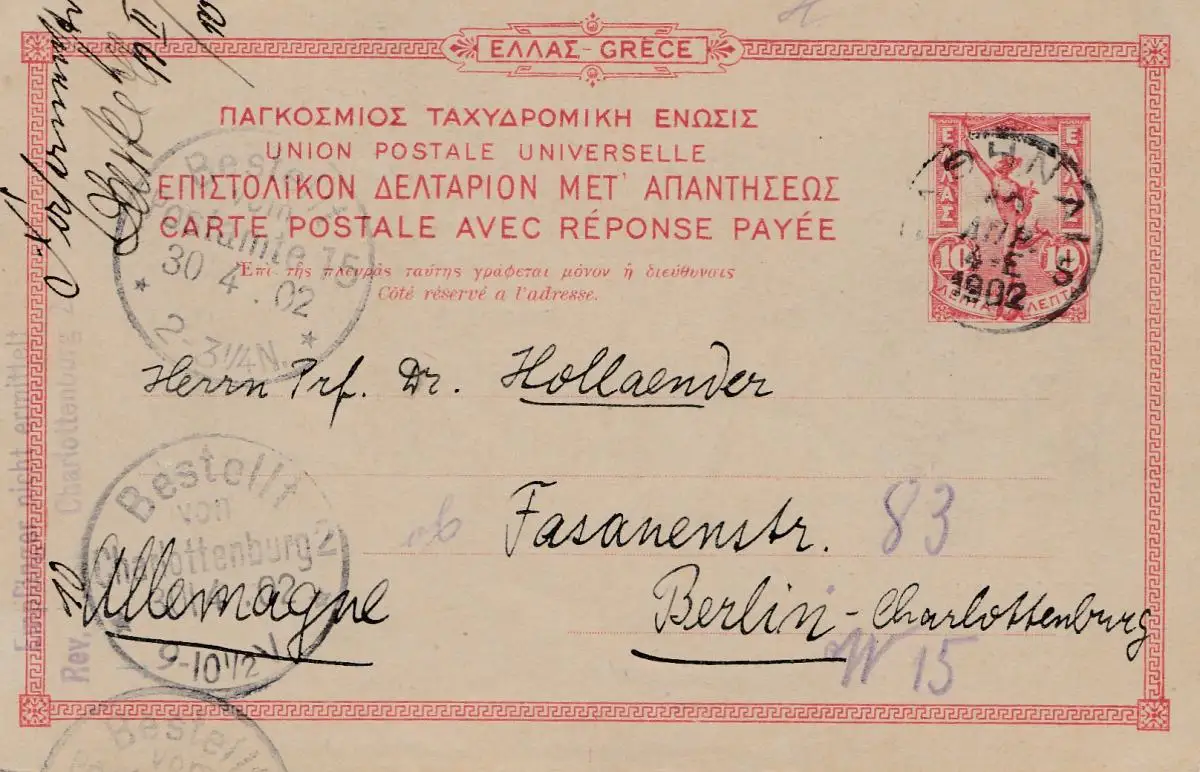 ΕΛΛΑΣ-GRÈCE
ΠΑΓΚΟΣΜΙΟΣ ΤΑΧΥΔΡΟΜΙΚΗ ΕΝΩΣΙΣ
UNION POSTALE UNIVERSELLE
ΕΠΙΣΤΟΛΙΚΟΝ ΔΕΛΤΑΡΙΟΝ ΜΕΤ' ΑΠΑΝΤΗΣΕΩΣ
CARTE POSTALE AVEC RÉPONSE PAYÉE
Ἐπὶ τῆς πλευρᾶς ταύτης γράφεται μόνον ἡ διεύθυνσις
Côté réservé a l'adresse.
ΕΛΛΑΣ
10 10
ΛΕΠΤΑ ΛΕΠΤΑ
ΑΘΗΝΑΙ
ΑΠΡ
4-Ε
1902
8
Bestellt
vom
Postamte 15
30 4.02
2-3 1/4 N.
Herrn Prf. Dr. Hollaender
Fasanenstr. 83
Berlin-Charlottenburg
W 15
Allemagne
Bestellt
von
Charlottenburg 2
02
9-10 1/2 V
Bestellt
vom
Empfänger nicht ermittelt
Rev. Charlottenburg 2